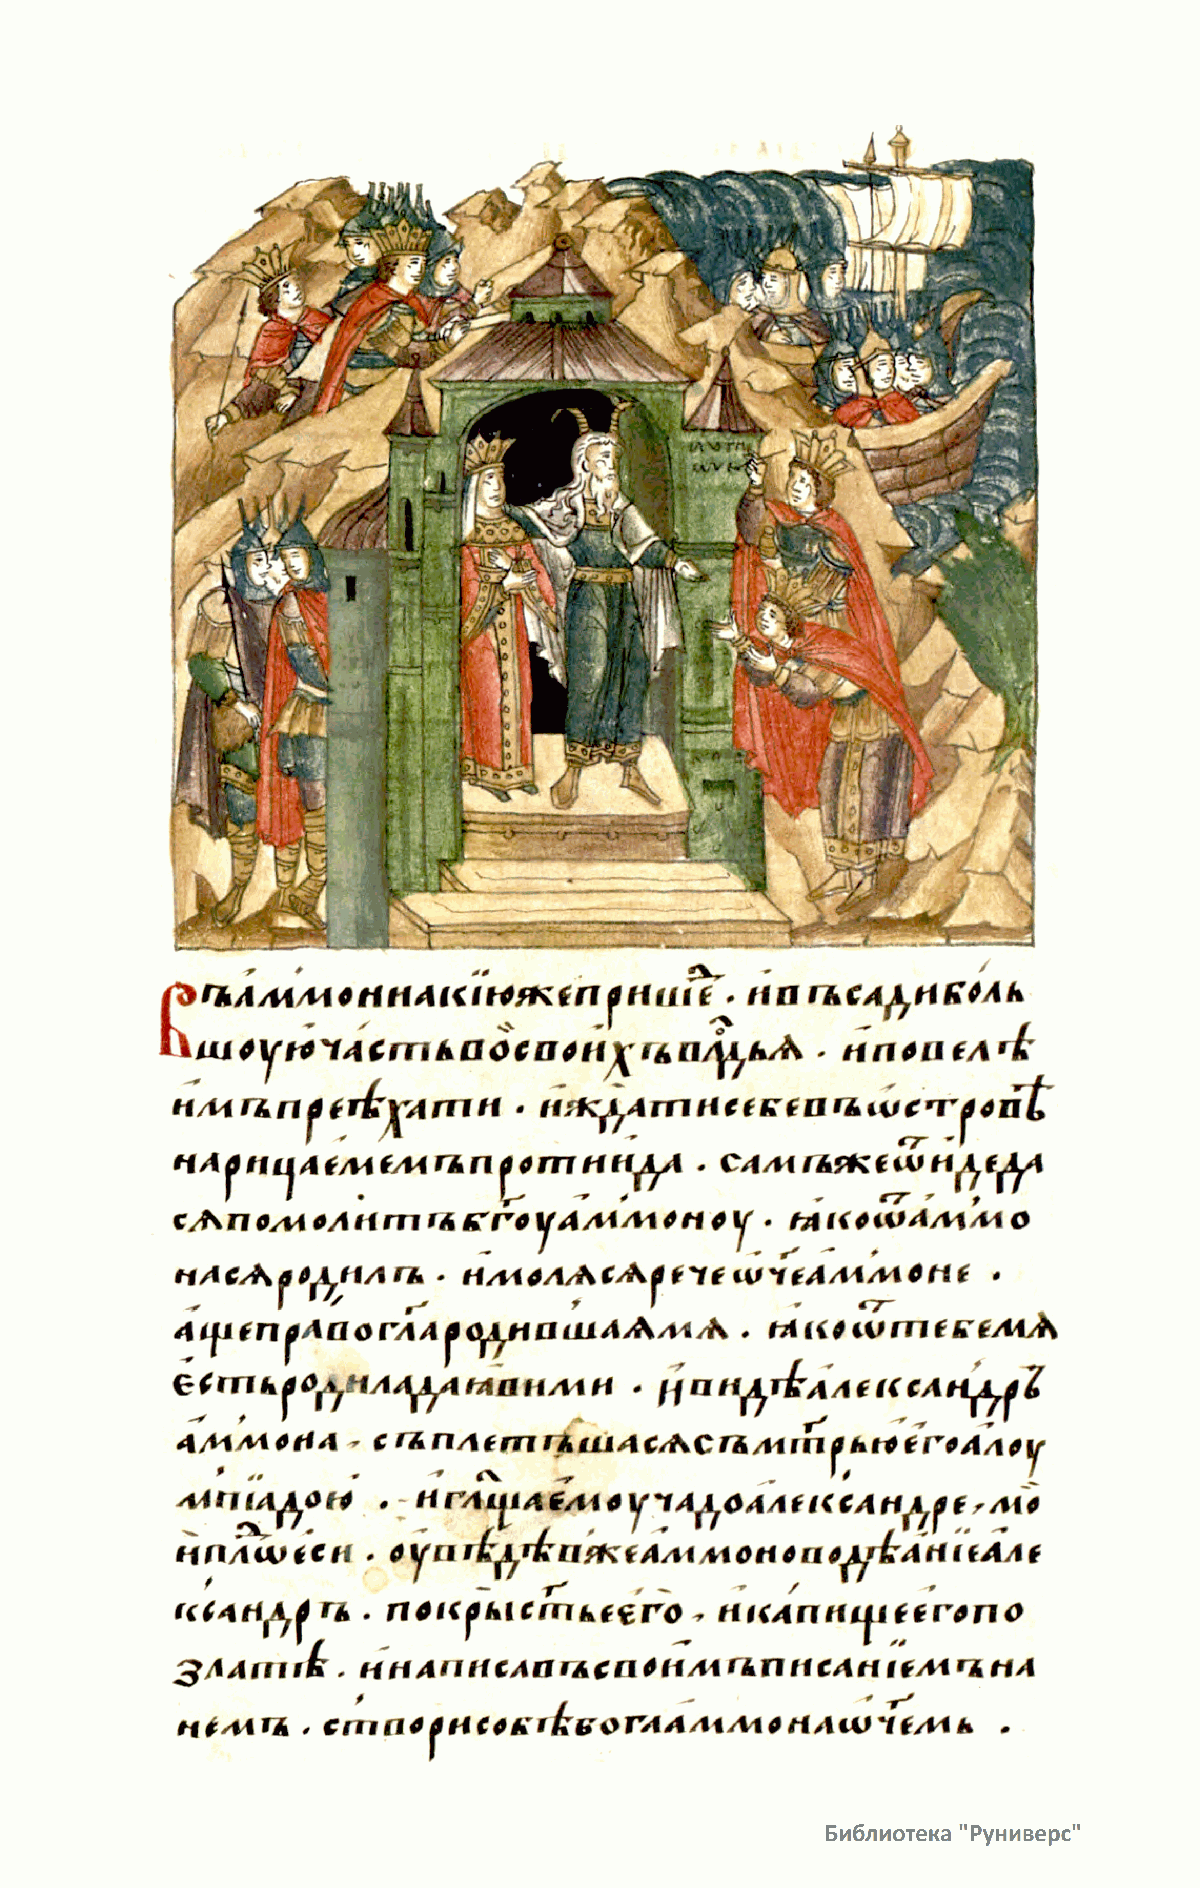 Въ аммоннакїю же прише҃ · и въсади боль
шоую часть во̾ своихъ влⷣдьѧ · и повелѣ
имъ преѣхати · и ждати себе въ ѡстровѣ
нарицаемемъ протиида · самъ же ѿиде да
сѧ помолитъ бг҃оу аммоноу · ꙗко ѿ аммо
на сѧ родилъ · и молѧсѧ рече ѡч҃е аммоне ·
аще право гл҃а родившаѧ мѧ · ꙗко ѿ тебе мѧ
есть родила да ꙗви ми · и видѣ александръ
аммона, съплетъшасѧ съ мт҃рью его алоу
мпїадою · и гл҃ща емоу чадо александре, мо
и пло̾ еси · оувѣдѣв же аммоново дѣанїе але
ксандръ · покры ст҃ье его, и капище его по
златѣ · и написавъ своимъ писанїемъ на
немъ · створи собѣ бога аммона ѡч҃емь ·
Библиотека "Руниверс"